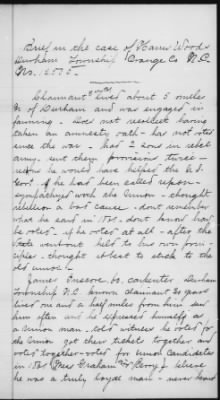 Brief in the case of Harris Wood
Durham Township Orange Co N.C.
No.
Claimant lives about 5 miles
N of Durham and was engaged in
farming. Does not recollect having
taken an amnesty oath - has not voted
since the war. had 2 sons in rebel
army. sent them provisions twice -
he would have helped the U.S.
Govt if he had been called upon.
sympathized with the Union - thought
rebellion a bad cause - dont remember
what he said in 1861. dont know how
he voted. if he voted at all - after the
State went out held to his own
- thought it best to stick to the
old union.
James 60, carpenter Durham
Township N.C. known claimant 20 years
lived one and a half miles from him saw
him often and he expressed himself as
a Union man - told witness he voted for
the Union got their tickets together and
voted together - voted for Union Candidates
in 1861 Graham Berry I believe
he was a truly loyal man - never heard